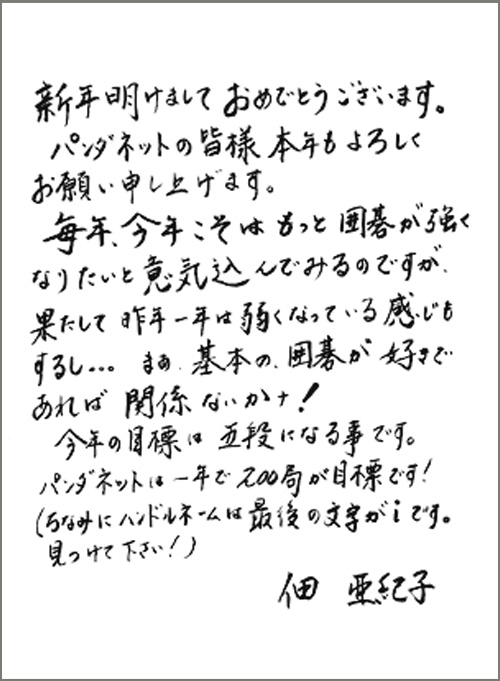 新年明けまして おめでとうございます。
パンダネットの皆様 本年もよろしく
お願い申し上げます。
毎年、今年こそは もっと 囲碁が強く
なりたいと意気込んでみるのですが、
果たして 昨年一年は弱くなっている感じも
するし... まぁ、基本の、囲碁が 好きで
あれば 関係ないかナ!
今年の目標は 五段になる事です。
パンダネットは一年で200局が目標です!
(ちなみにハンドルネームは最後の文字がiです。
見つけて下さい!)
佃 亜紀子